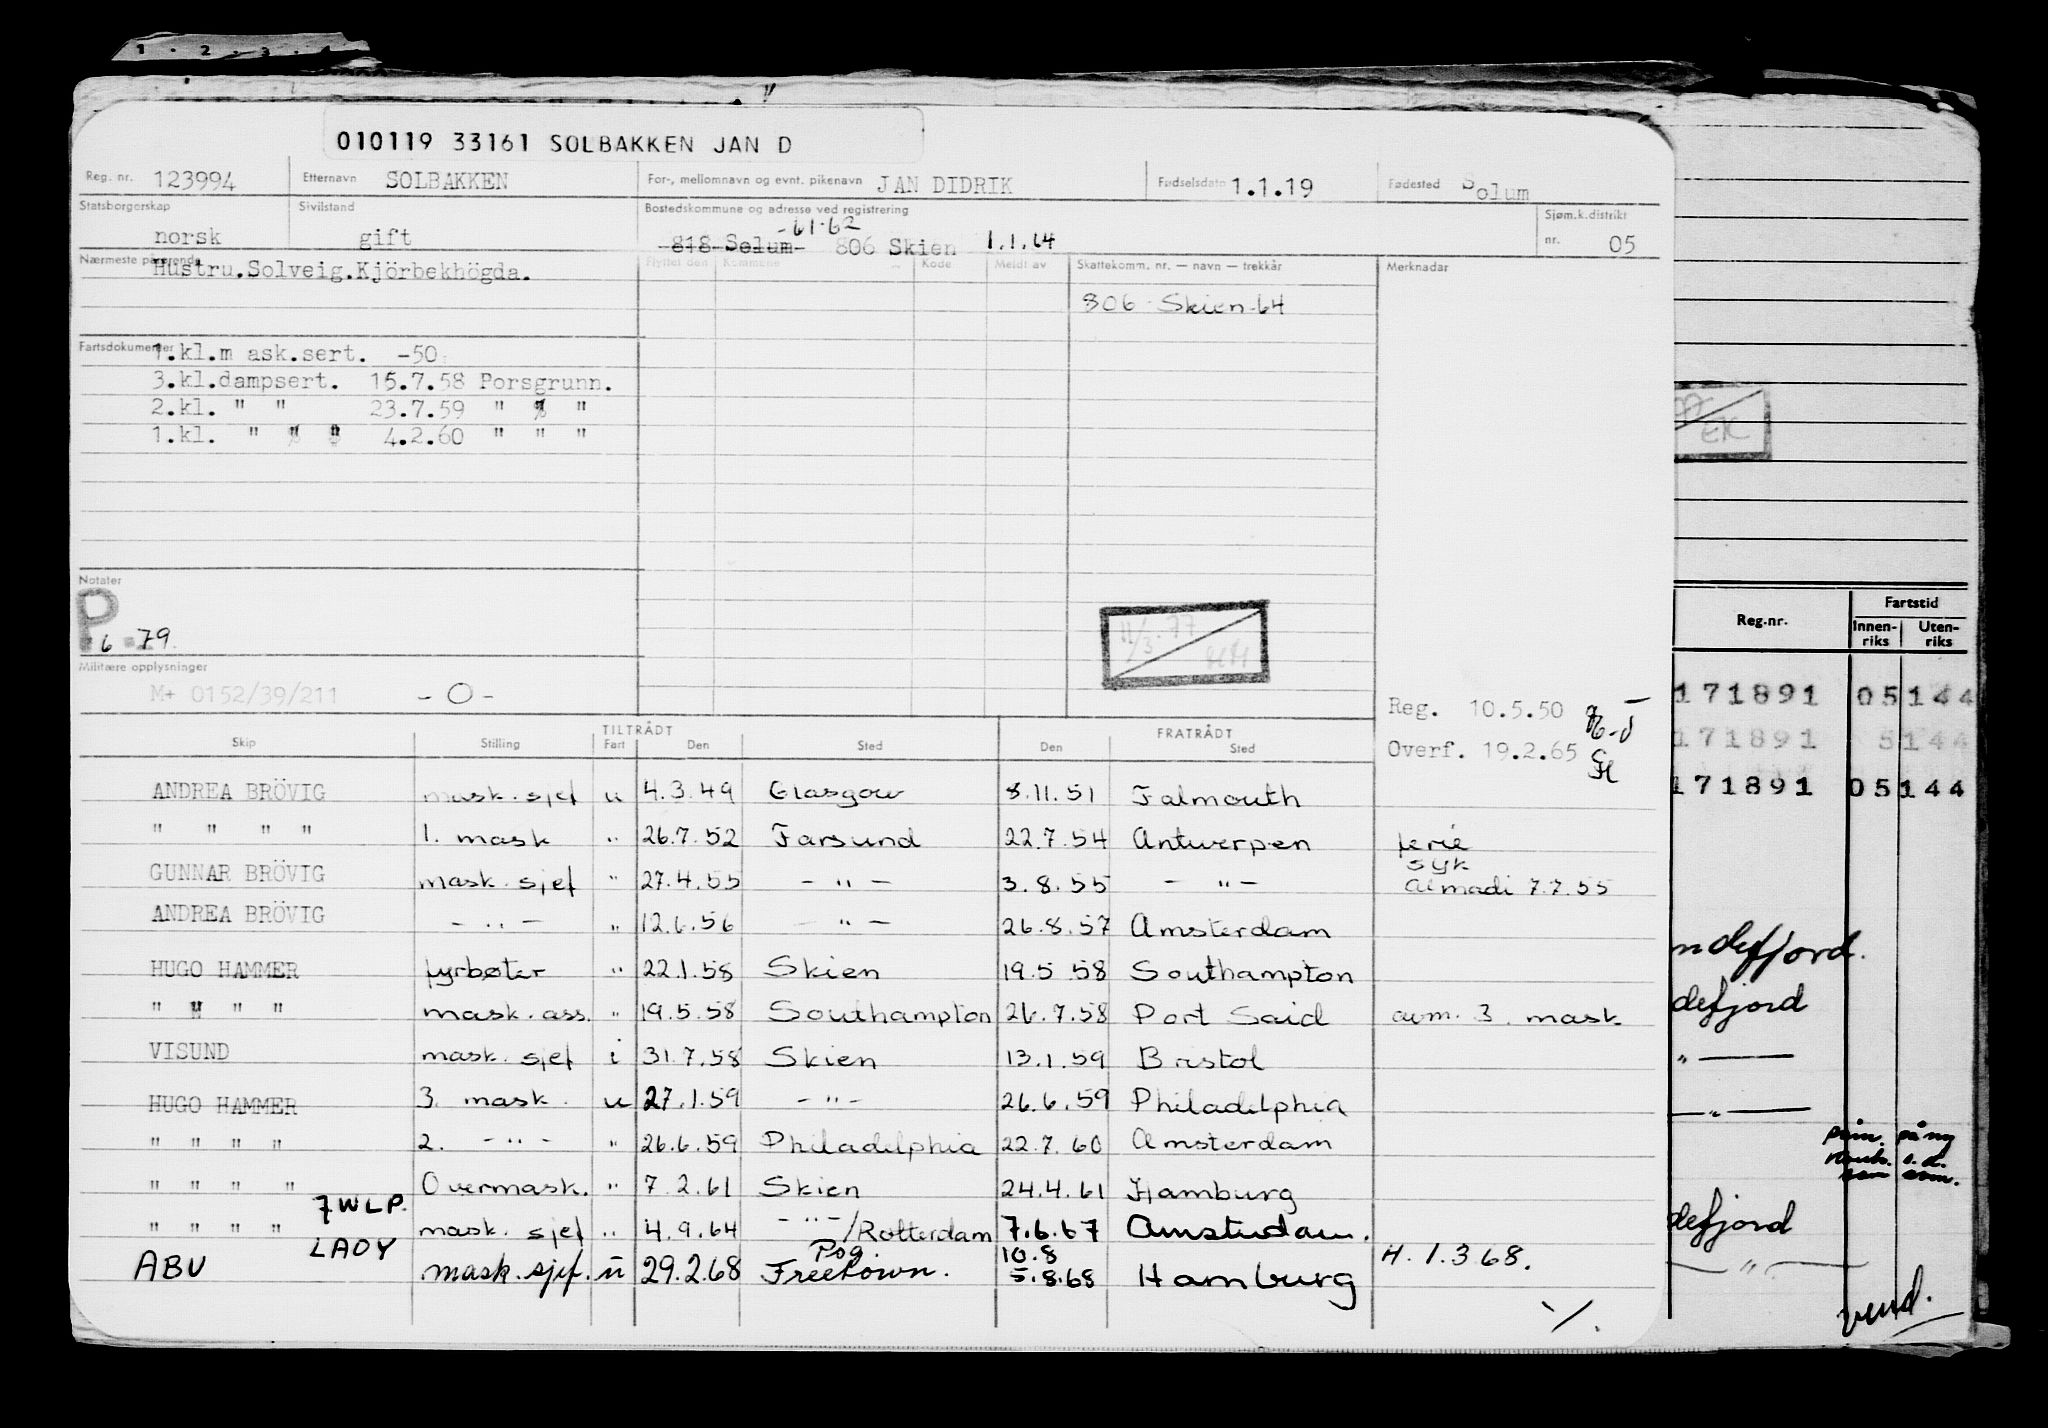 1 . 2 . 3 .
010119 33161 SOLBAKKEN JAN D
Reg. nr. 123994 Etternavn SOLBAKKEN For-, mellomnavn og evnt. pikenavn JAN DIDRIK Fødselsdato 1.1.19 Fødested Solum
Statsborgerskap norsk Sivilstand gift Bostedskommune og adresse ved registrering 818 Solum -61-62 806 Skien 1.1.64 Sjøm.k.distrikt nr. 05
Nærmeste pårørende Hustru.Solveig.Kjörbekhögda.
Flyttet den Kommune Kode Meldt av Skattekomm. nr. — navn — trekkår Merknader
806 Skien-64
Fartsdokumenter 1.kl.m ask.sert. -50
3.kl.dampsert. 15.7.58 Porsgrunn.
2.kl. " " 23.7.59 " "
1.kl. " " 4.2.60 " " "
Notater
P 6.79.
11/3.77
Militære opplysninger
M+ 0152/39/211 - O -
Reg. 10.5.50
Overf. 19.2.65
Skip Stilling TILTRÅDT Fart Den Sted FRATRÅDT Den Sted
ANDREA BRÖVIG mask. sjef u 4.3.49 Glasgow 8.11.51 Falmouth
" " " " 1. mask " 26.7.52 Farsund 22.7.54 Antwerpen ferie
syk
GUNNAR BRÖVIG mask. sjef " 27.4.55 - " - 3.8.55 - " - 7.7.55
ANDREA BRÖVIG - " - " 12.6.56 - " - 26.8.57 Amsterdam
HUGO HAMMER fyrbøter " 22.1.58 Skien 19.5 58 Southampton
" " " " mask. ass. " 19.5.58 Southampton 26.7.58 Port Said avm. 3. mask
VISUND mask. sjef i 31.7.58 Skien 13.1.59 Bristol
HUGO HAMMER 3. mask. u 27.1.59 - " - 26.6.59 Philadelphia
" " " " 2. - " - " 26.6.59 Philadelphia 22.7.60 Amsterdam
" " " " Overmask. " 7.2.61 Skien 24.4.61 Hamburg
7WLP.
" " " " mask. sjef " 4.9.64 - " -/Rotterdam 7.6.67 Amsterdam.
LADY Pog 10.8
ABU mask. sjef. u 29.2.68 Freetown. 5.8.68 Hamburg H. 1.3.68.
%.
EK
Reg.nr. Fartstid
Innen-riks Uten-riks
171891 05 144
171891 5 144
171891 05 144
ndefjord.
defjord
" —
— " —
på ny
som som.
defjord
— " —
vend.